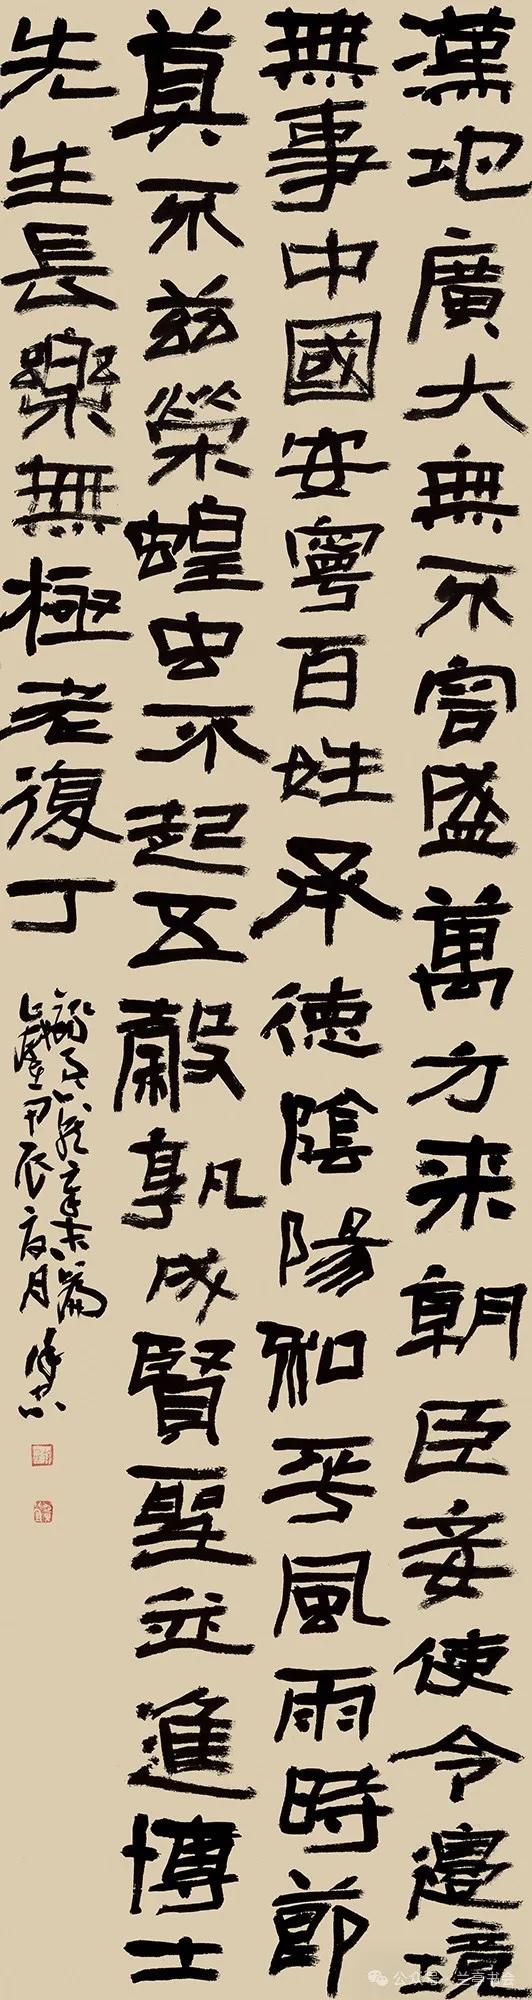 漢地廣大無不容盛萬方来朝臣妾使令邊境
無事中國安寧百姓承德陰陽和平風雨時節
莫不兹榮蝗虫不起五穀孰成賢聖並進博士
先生長樂無極老復丁
章末篇
甲辰夏月
公众号·兰亭书会